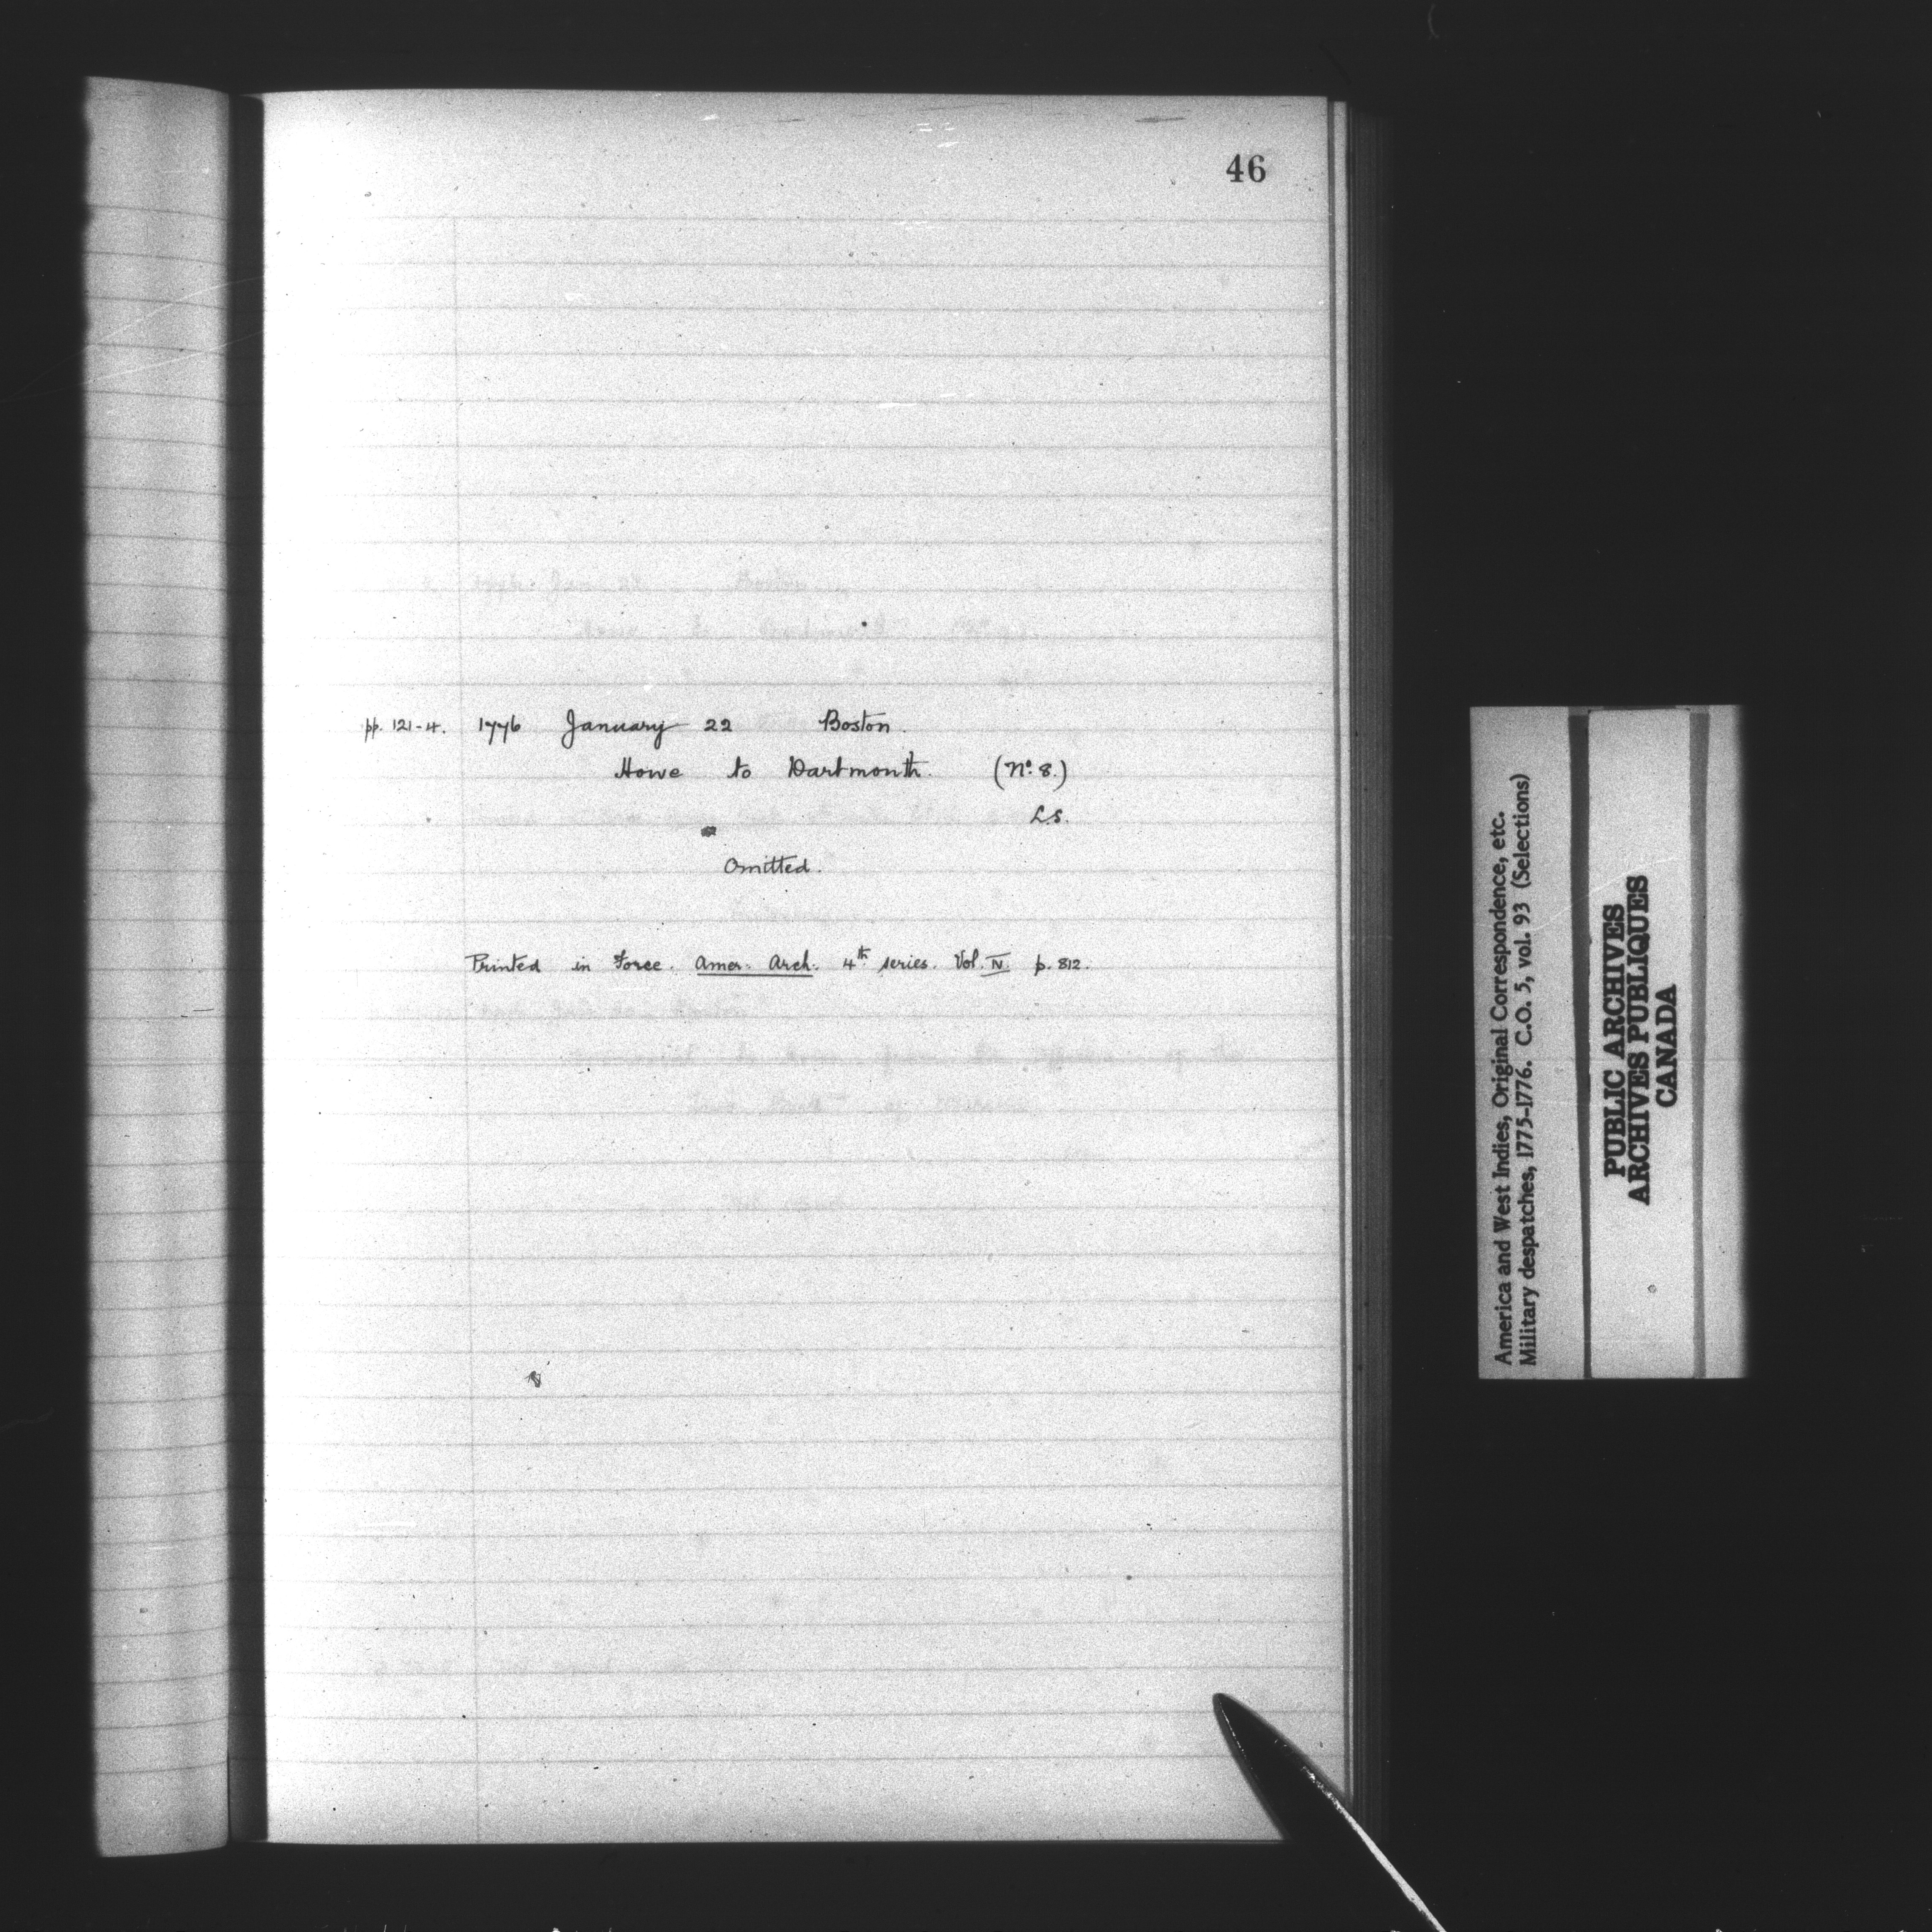 46
pp. 121-4. 1776 January 22 Boston.
Howe to Dartmouth. (No. 8.)
L.S.
Omitted.
Printed in Force. Amer. Arch. 4th series. Vol. IV. p. 812.
America and West Indies, Original Correspondence, etc.
Military despatches, 1775-1776. C.O. 5, vol. 93 (Selections)
PUBLIC ARCHIVES
ARCHIVES PUBLIQUES
CANADA